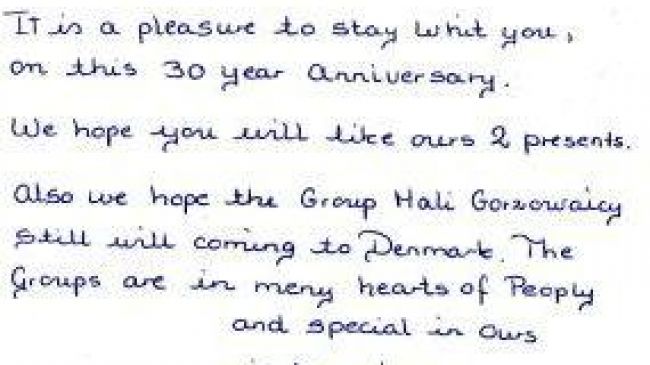 It is a pleasure to stay whit you,
on this 30 year Anniversary.
We hope you will like ours 2 presents.
Also we hope the Group Mali Gorzowaicy
Still will coming to Denmark. The
Groups are in meny hearts of Peoply
and special in ours